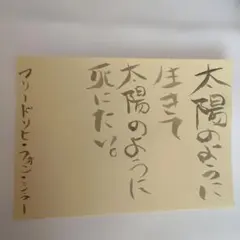 太陽のように
生きて
太陽のように
死にたい。
フリードリヒ・フォン・シラー